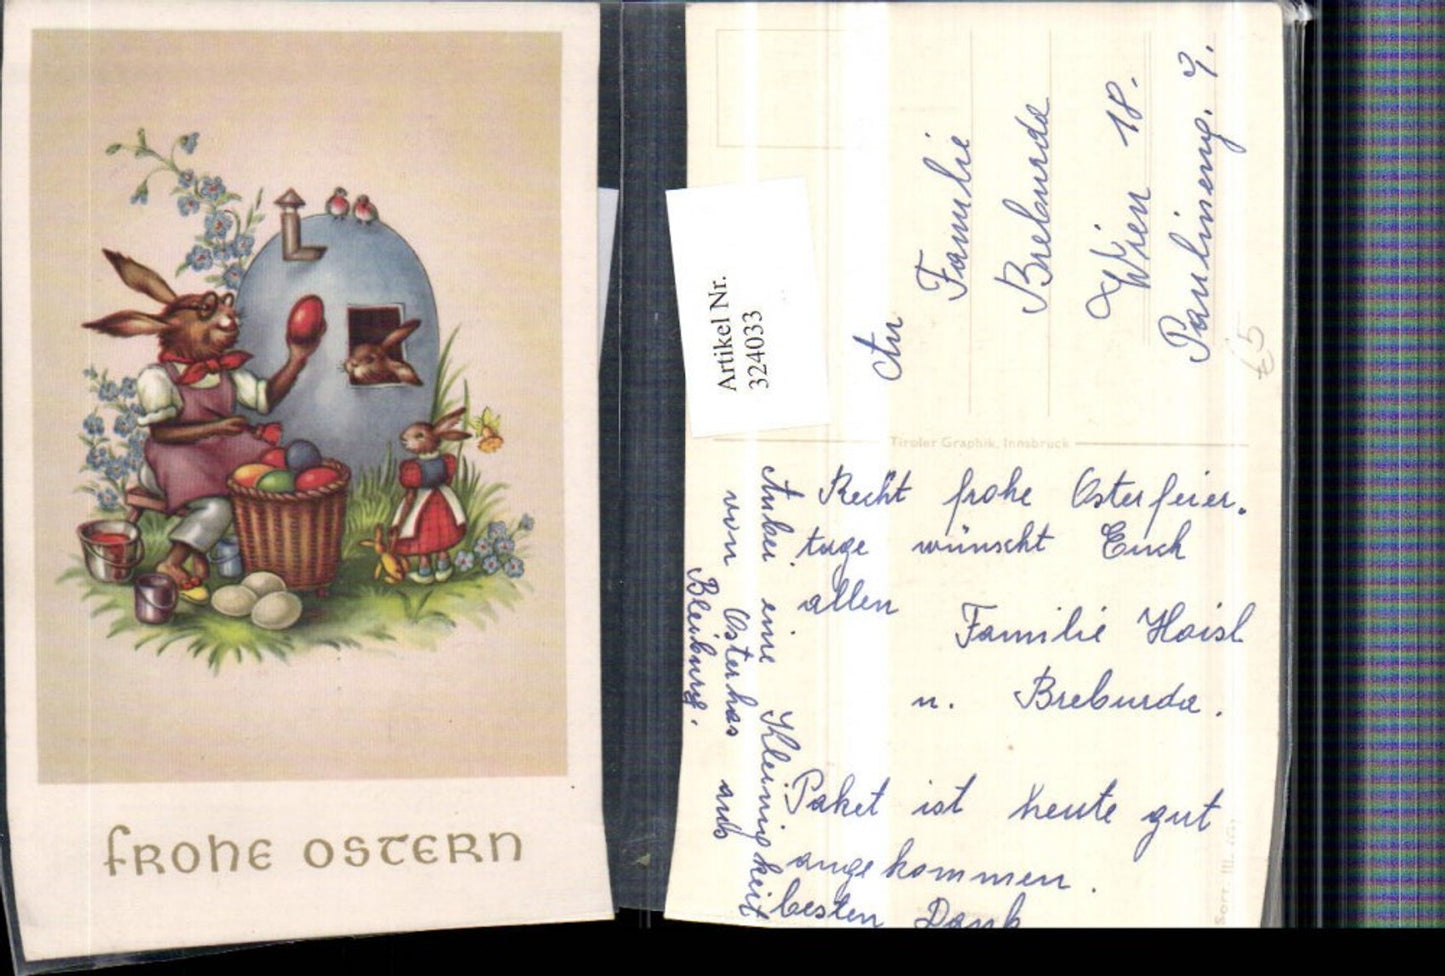 FROHE OSTERN
Artikel Nr.
324033
An
Familie
Breburda
Wien 18.
Paulineng. 9.
£5
Tiroler Graphik, Innsbruck
Recht frohe Osterfeier.
tage wünscht Euch
allen
Familie Haisl
u. Breburda.
Paket ist heute gut
angekommen.
besten Dank
Anbei eine Kleinigkeit
von Osterhas aus
Bleiburg.
Sort. III.